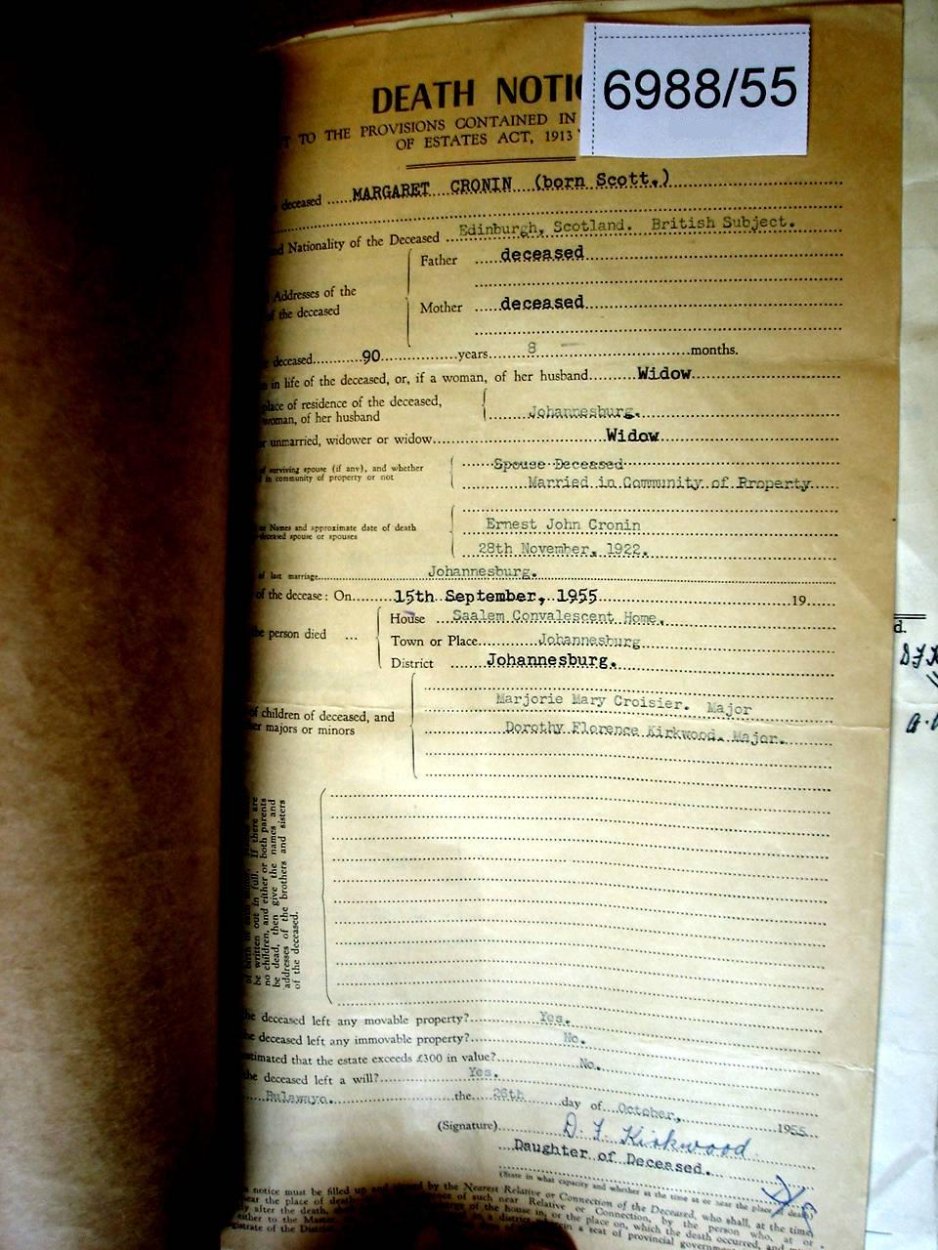 6988/55
DEATH NOTI
T TO THE PROVISIONS CONTAINED IN
OF ESTATES ACT, 1913
deceased MARGARET CRONIN (born Scott.)
nd Nationality of the Deceased Edinburgh, Scotland. British Subject.
Father deceased
Addresses of the
f the deceased
Mother deceased
deceased 90 years 8 months.
in life of the deceased, or, if a woman, of her husband Widow
place of residence of the deceased,
woman, of her husband Johannesburg.
r unmarried, widower or widow Widow
f surviving spouse (if any), and whether Spouse Deceased
in community of property or not Married in Community of Property
or Names and approximate date of death Ernest John Cronin
deceased spouse or spouses 28th November, 1922.
of last marriage Johannesburg.
of the decease: On 15th September, 1955 19
House Saalem Convalescent Home,
he person died ... Town or Place Johannesburg
District Johannesburg.
Marjorie Mary Croisier. Major
of children of deceased, and
er majors or minors Dorothy Florence Kirkwood. Major.
be written out in full. If there are
no children, and either or both parents
be dead, then give the names and
addresses of the brothers and sisters
of the deceased.
he deceased left any movable property? Yes.
he deceased left any immovable property? No.
stimated that the estate exceeds £300 in value? No.
the deceased left a will? Yes.
Bulawayo. the 26th day of October, 1955
(Signature) D. F Kirkwood
Daughter of Deceased.
(State in what capacity and whether at the time at or near the place of death)
notice must be filled up and by the Nearest Relative or Connection of the Deceased, who shall, at the time
near the place of death, of such near Relative or Connection, by the person who, at or
after the death, of the house in, or the place on, which the death occurred, and
either to the Master, in a district a seat of provincial government
istrate of the District
d.